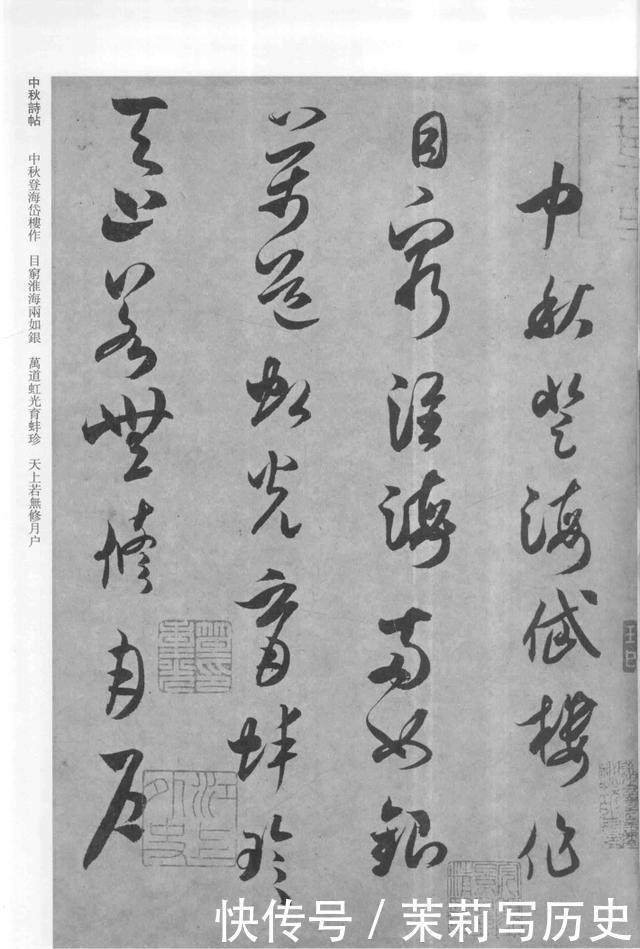 中秋詩帖　中秋登海岱樓作　目窮淮海兩如銀　萬道虹光育蚌珍　天上若無修月户
中秋登海岱樓作
目窮淮海兩如銀
萬道虹光育蚌珍
天上若無修月户
江上外史
快传号 / 茉莉写历史